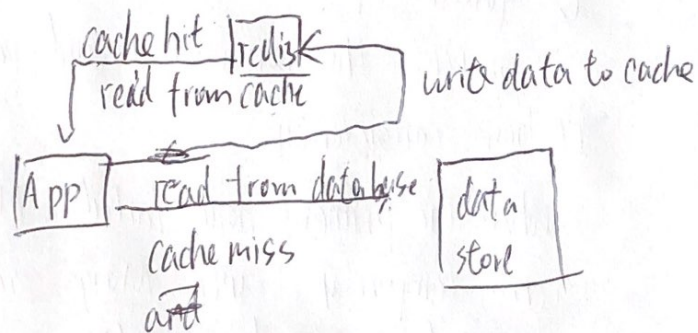 cache hit
redis
read from cache
write data to cache
App
read from database
data
store
cache miss